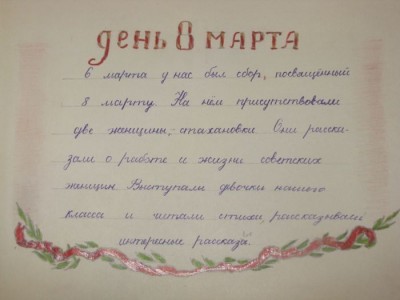 ДЕНЬ 8 МАРТА
6 марта у нас был сбор, посвящённый
8 марту. На нём присутствовали
две женщины,-стахановки. Они расска-
зали о работе и жизни советских
женщин. Выступали девочки нашего
класса и читали стихи, рассказывали
интересные рассказы.